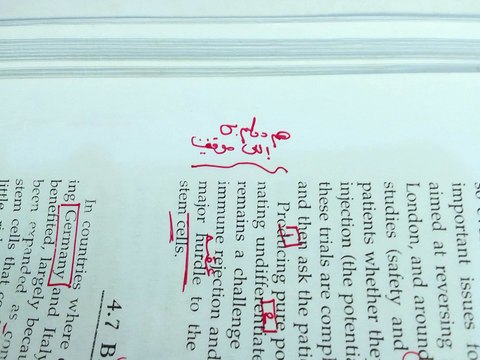 important issues f
aimed at reversing
London, and around
studies (safety and
patients whether th
injection (the potenti
these trials are compl
and then ask the pati
Producing pure po
nating undifferentiate
remains a challenge
immune rejection and
major hurdle to the
stem cells.
4.7 B
In countries where
ing Germany and Italy
benefited, largely becau
been expanded as
stem cells that
little